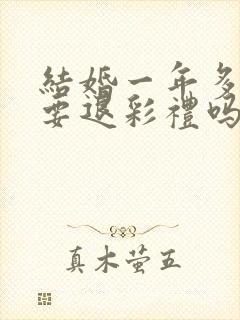 結婚一年多
要退彩禮嗎
真木萤五